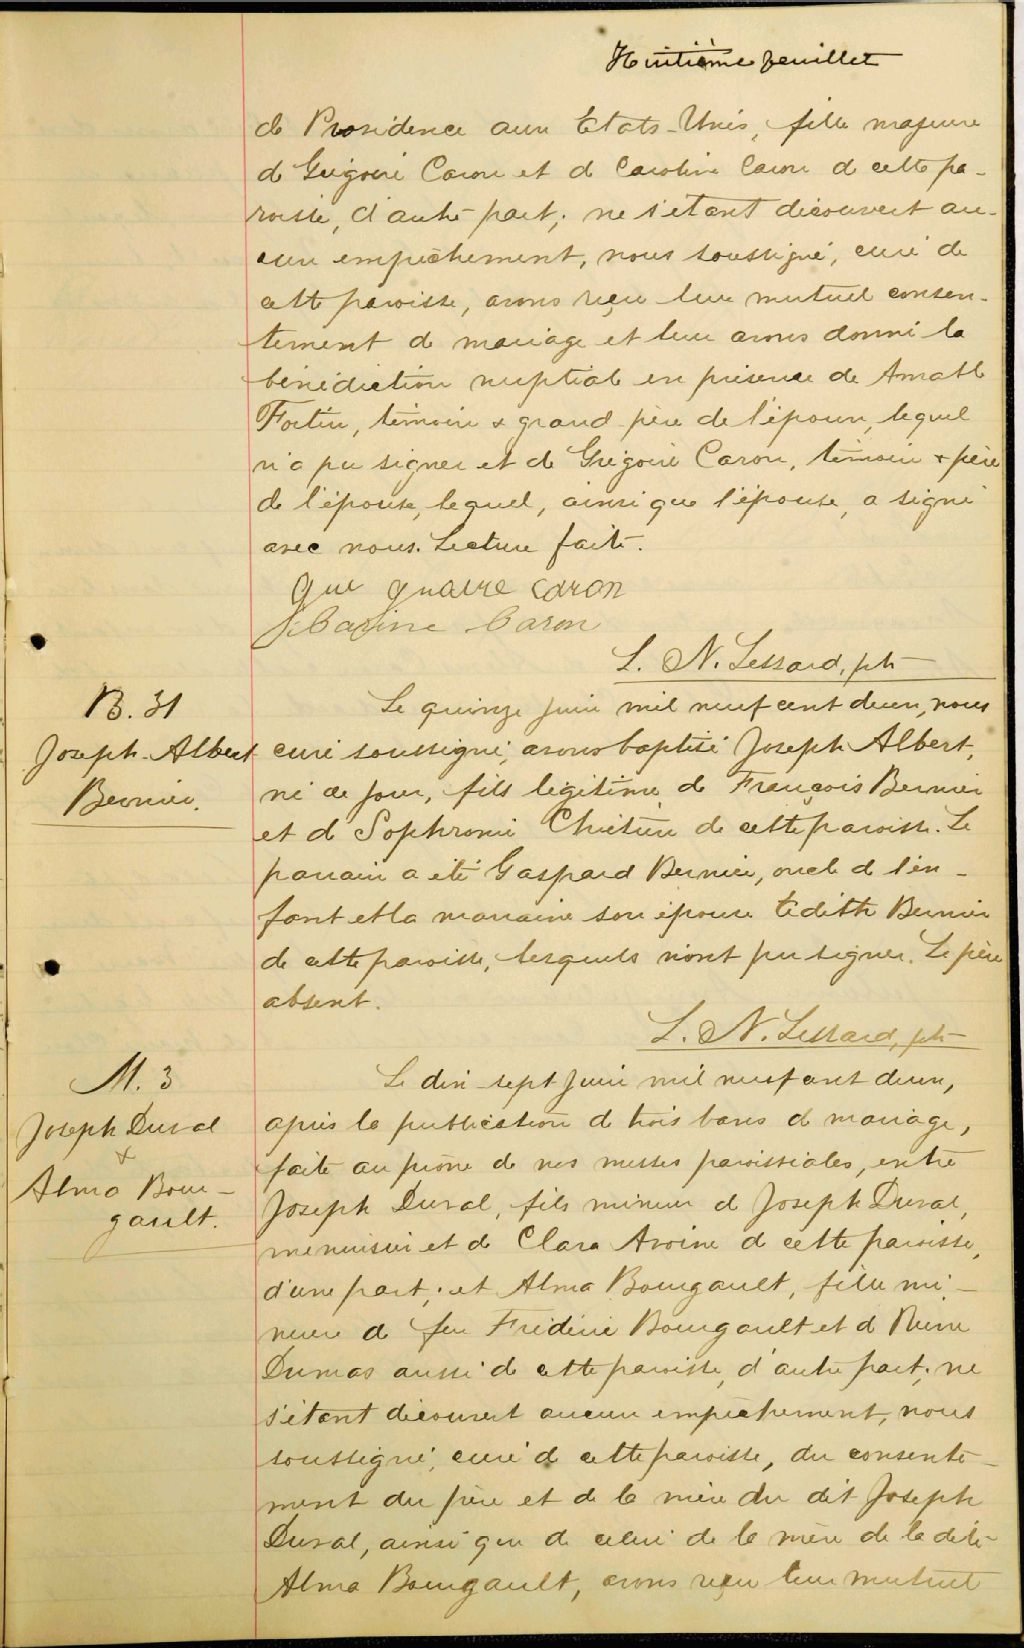 Huitième feuillet
de Providence aux Etats-Unis, fille majeure
de Grégoire Caron et de Caroline Caron de cette pa-
roisse, d'autre part; ne s'étant découvert au-
cun empêchement, nous soussigné, curé de
cette paroisse, avons reçu leur mutuel consen-
tement de mariage et leur avons donné la
bénédiction nuptiale en présence de Amable
Fortin, témoin & grand-père de l'époux, lequel
n'a pu signer et de Grégoire Caron, témoin & père
de l'épouse, lequel, ainsi que l'épouse, a signé
avec nous. Lecture faite.
caron
Caron
L. N. Lessard, ptre
B. 31
Joseph-Albert
Bernier.
Le quinze juin mil neuf cent deux, nous
curé soussigné, avons baptisé Joseph Albert,
né ce jour, fils légitime de François Bernier
et de Sophronie Chrétien de cette paroisse. Le
parrain a été Gaspard Bernier, oncle de l'en-
fant et la marraine son épouse Edith Bernier
de cette paroisse, lesquels n'ont pu signer. Le père
absent.
L. N. Lessard, ptre
M. 3
Joseph Duval
&
Alma Bour-
gault.
Le dix-sept juin mil neuf cent deux,
après la publication de trois bans de mariage,
faite au prône de nos messes paroissiales, entre
Joseph Duval, fils mineur de Joseph Duval,
menuisier et de Clara Avoine de cette paroisse,
d'une part; et Alma Bourgault, fille mi-
neure de feu Frédéric Bourgault et de
Dumas aussi de cette paroisse, d'autre part; ne
s'étant découvert aucun empêchement, nous
soussigné, curé de cette paroisse, du consente-
ment du père et de la mère du dit Joseph
Duval, ainsi que de celui de la mère de la dite
Alma Bourgault, avons reçu leur mutuel